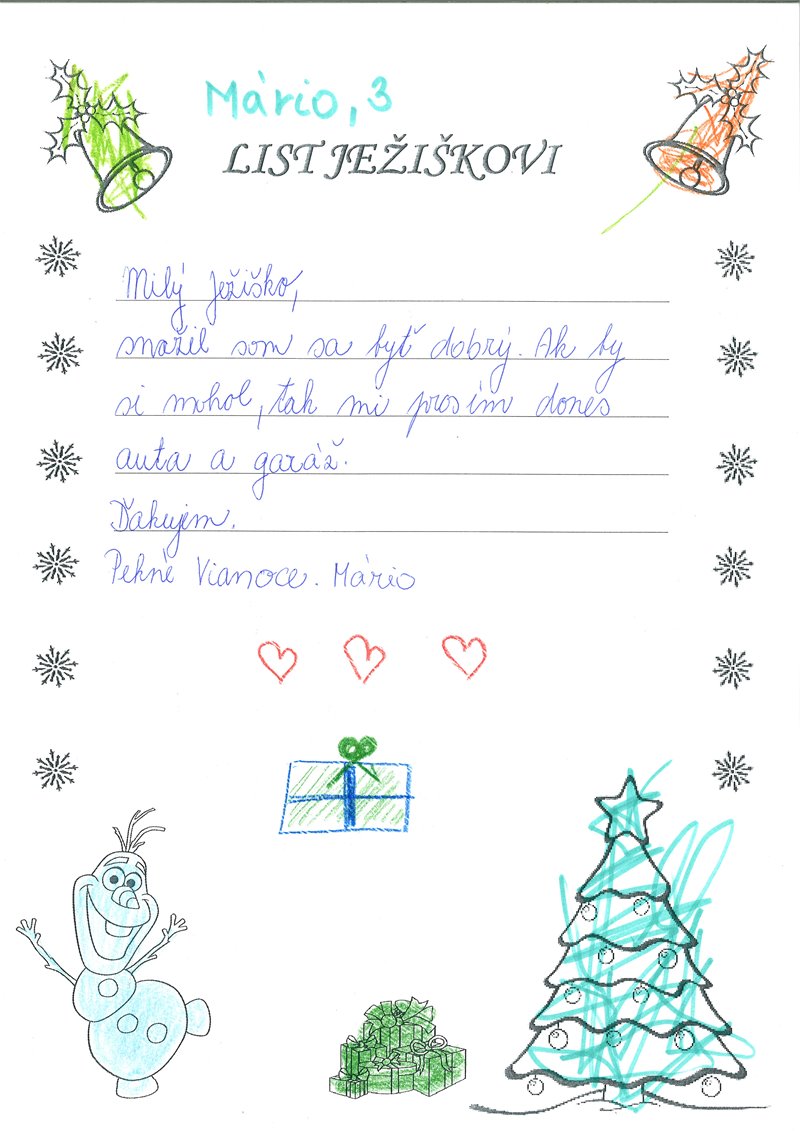 Mário, 3
LIST JEŽIŠKOVI
Milý Ježiško,
snažil som sa byť dobrý. Ak by
si mohol, tak mi prosím dones
autá a garáž.
Ďakujem.
Pekné Vianoce. Mário